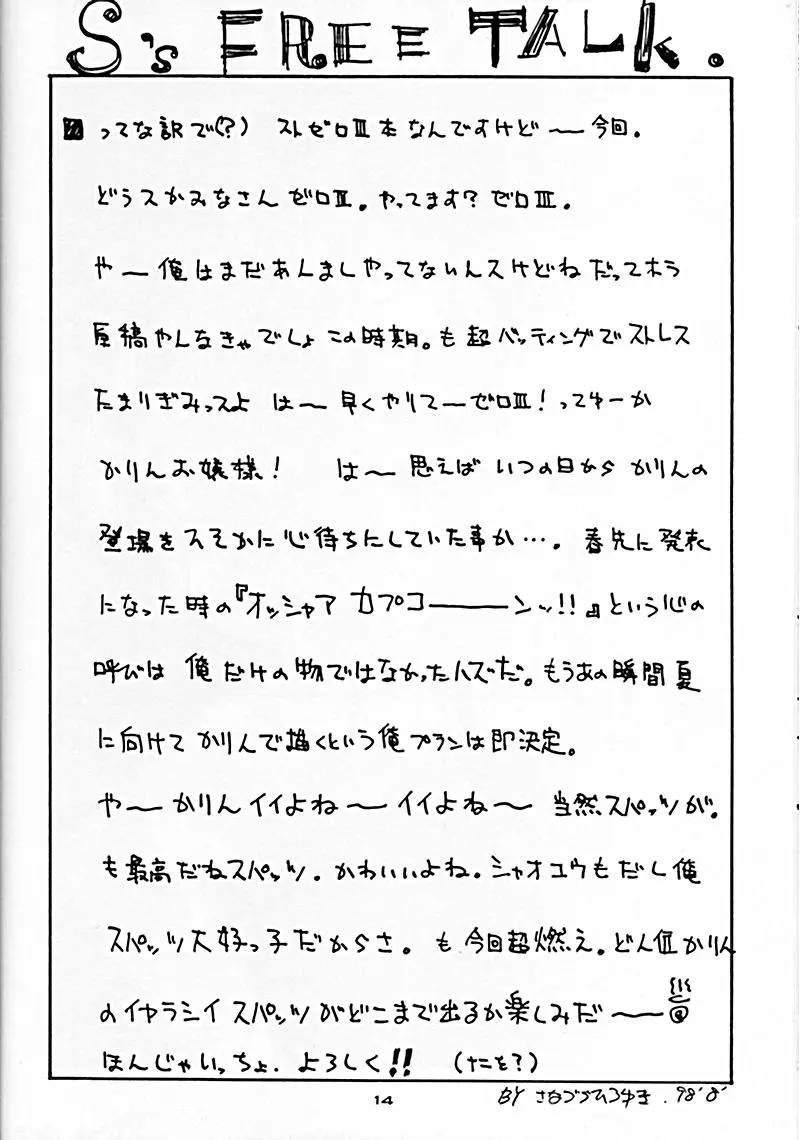 S's FREE TALK.
ってな訳で(?) ストゼロⅢ本なんですけど〜今回。
どうスかみなさんゼロⅢ。やってます?ゼロⅢ。
や〜俺はまだあんましやってないんスけどねだってホラ
原稿やんなきゃでしょこの時期。も超バッティングでストレス
たまりぎみっスよ は〜早くやりてーゼロⅢ!ってゆーか
かりんお嬢様! は〜思えばいつの日からかりんの
登場をひそかに心待ちにしていた事か…。春先に発表
になった時の『オッシャア カプコーーーンッ!!』という心の
呼びは俺だけの物ではなかったハズだ。もうあの瞬間夏
に向けてかりんで描くという俺プランは即決定。
や〜かりんイイよね〜イイよね〜 当然スパッツが。
も最高だねスパッツ。かわいいよね。シャオユウもだし俺
スパッツ大好っ子だからさ。も今回超燃え。どん位かりん
のイヤラシイスパッツがどこまで出るか楽しみだ〜
ほんじゃいっちょ.よろしく!! (ナニを?)
14
BY 98'8'